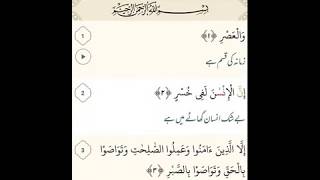 بِسْمِ اللَّهِ الرَّحْمَٰنِ الرَّحِيمِ
1
وَالْعَصْرِ ﴿١﴾
زمانہ کی قسم ہے
2
إِنَّ الْإِنْسَٰنَ لَفِى خُسْرٍ ﴿٢﴾
بے شک انسان گھاٹے میں ہے
3
إِلَّا الَّذِينَ ءَامَنُوا وَعَمِلُوا الصَّٰلِحَٰتِ وَتَوَاصَوْا
بِالْحَقِّ وَتَوَاصَوْا بِالصَّبْرِ ﴿٣﴾